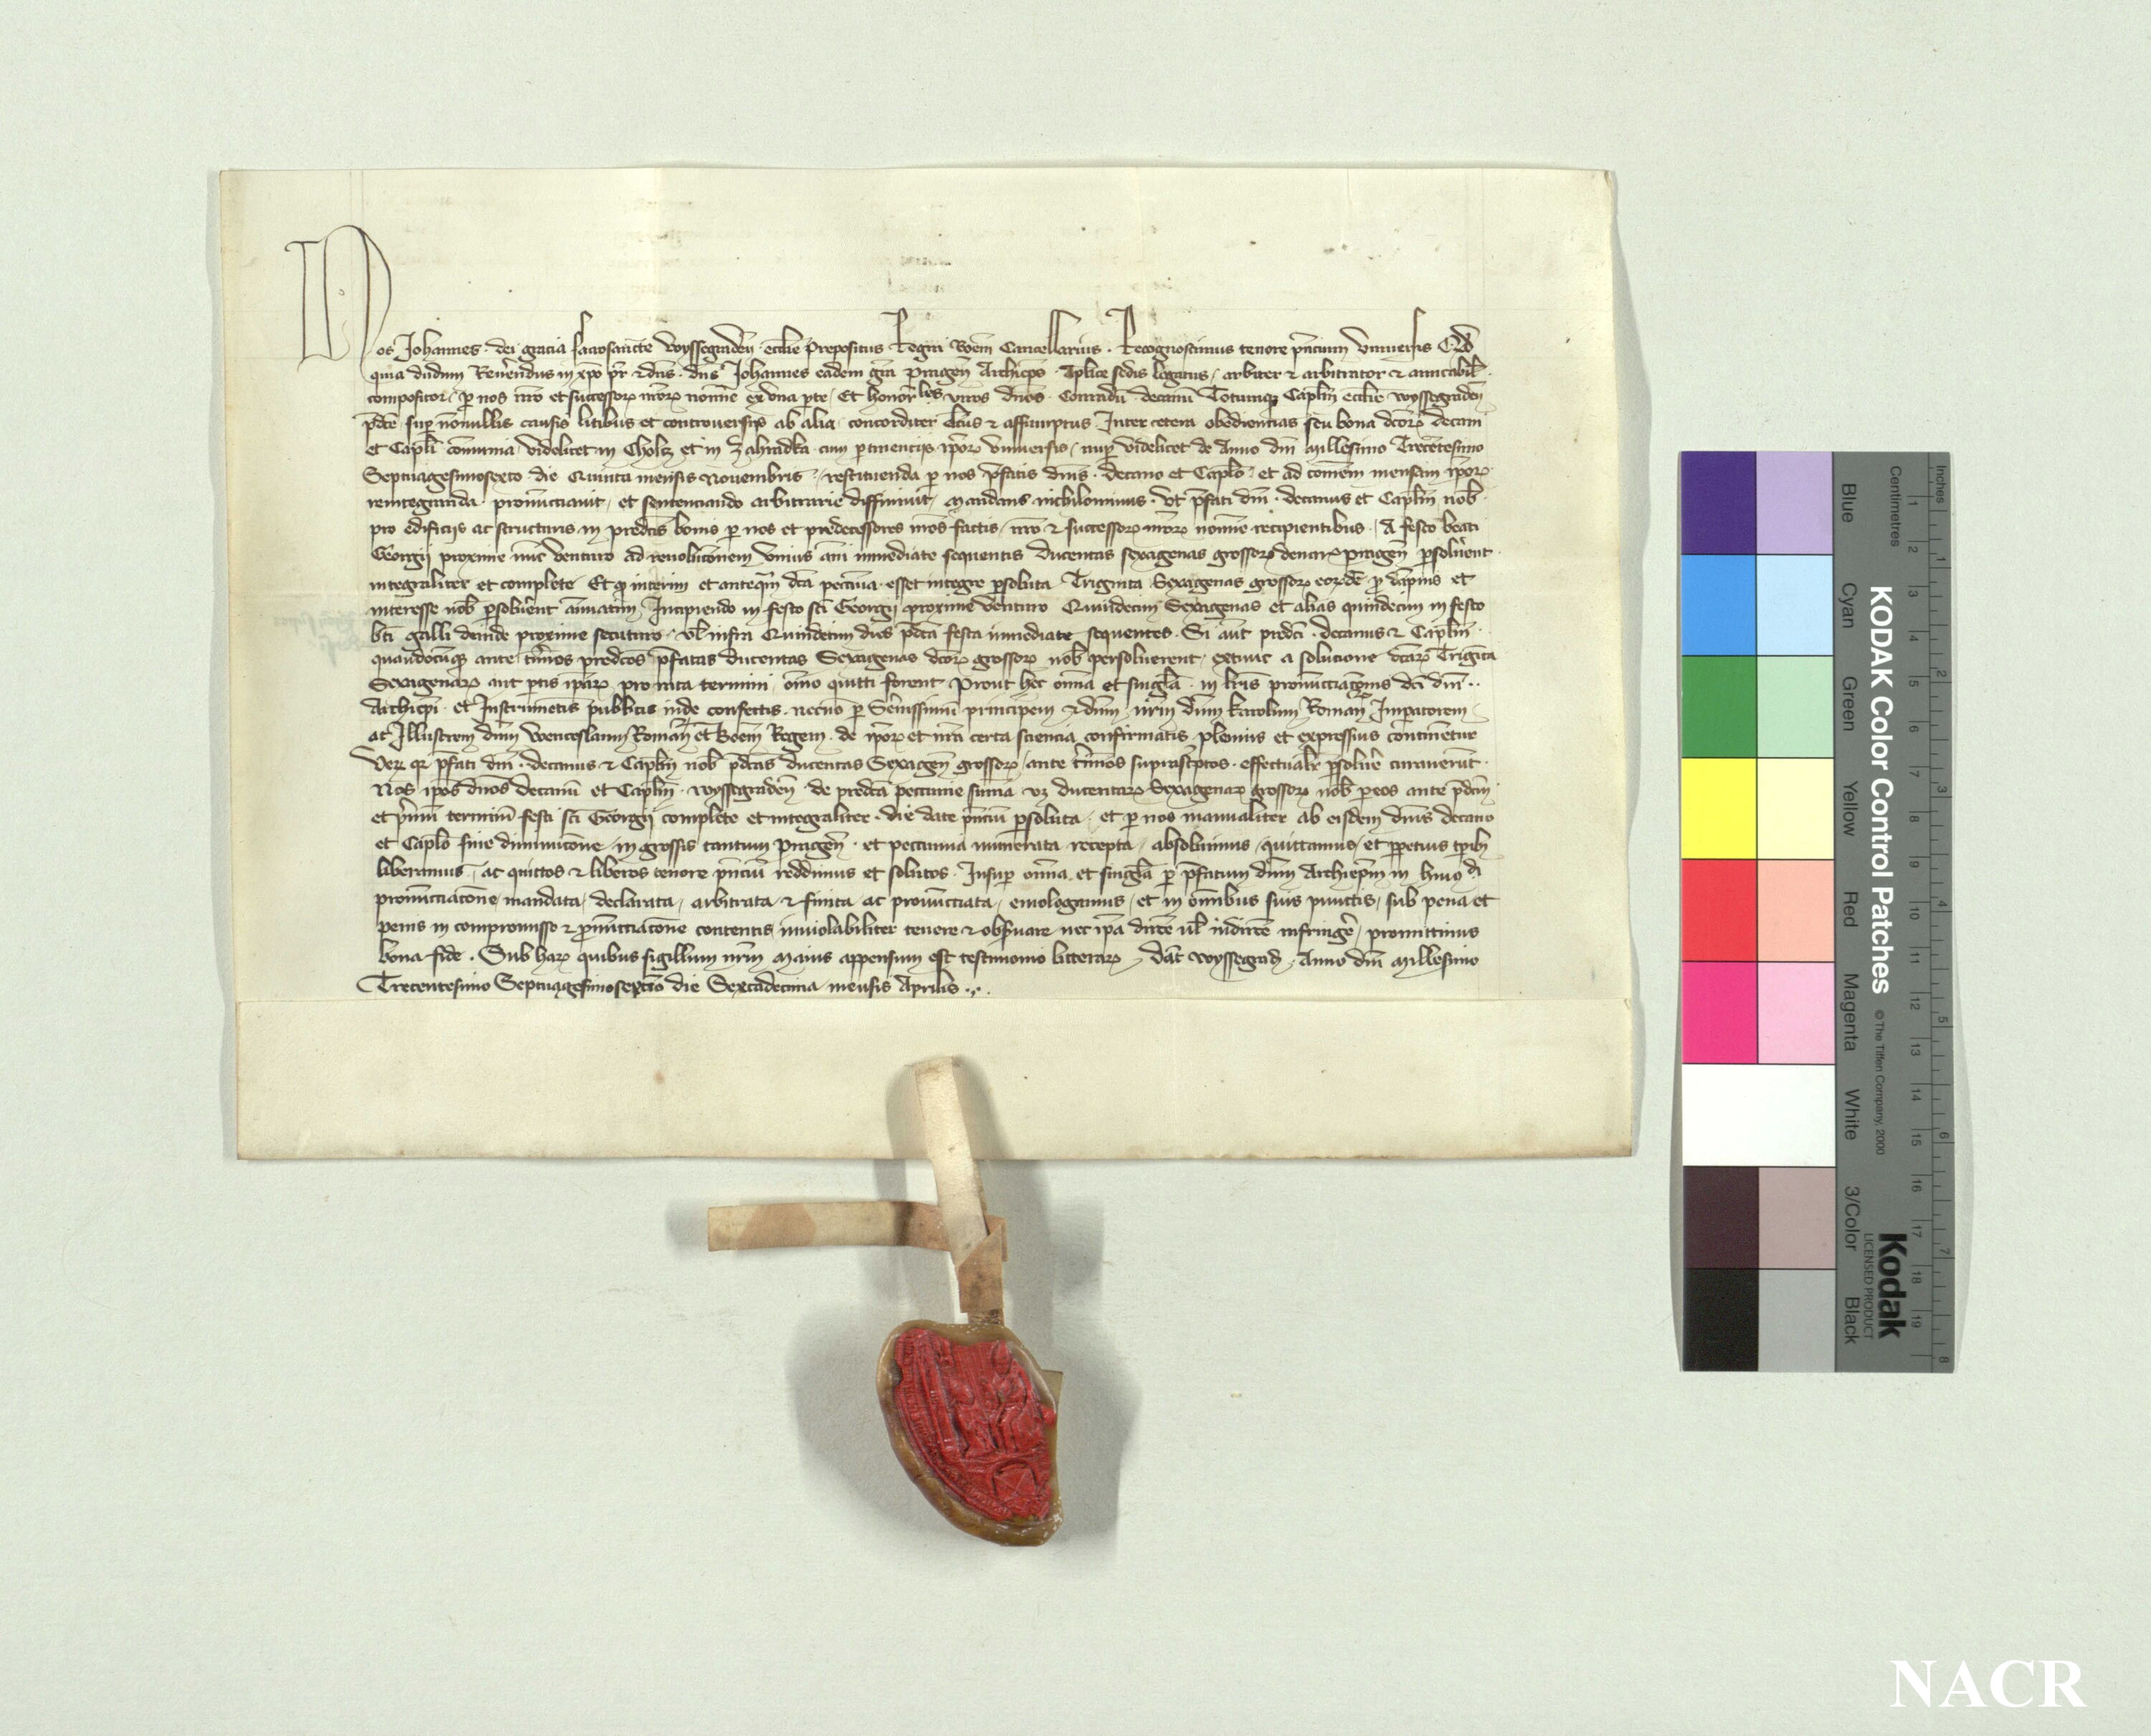 Nos Johannes dei gracia sacrosancte Wyssegradeñ ecclie Prepositus Regni Boem̄ Cancellarius . Recognoscimus tenore p̄ncium Vniuersis Qd
quia dudum Reu̓endus in xp̄o pr̄ ⁊ dn̄s . dn̄s Johannes eadem gr̄a Pragen̄ Archiep̄s . Aplice sedis legatus , arbiter ⁊ arbitrator ⁊ amicabil̓
compositor , p̱ nos nr̄o et successoꝝ nr̄oꝝ nomīe ex vna p̱te , Et honor̄les viros dn̄os . Conradū decanū Totumqꝫ Capl̄m ecclie wyssegraden̄
p̄dc̄e sup̱ nonnullis causis litibus et controuersijs ab alia concorditer el̄cus ⁊ assumptus Inter cetera obedientias seu bona dc̄oꝝ decani
et Capl̄i cōmunia videlicet in Cholcz et in Zahradka cum p̱tinencijs ip̄oꝝ vniuersis , nup̱ videlicet de Anno dn̄i Millesimo Trecētesimo
Septuagesimosexto die Quinta mensis Nouembris , restituenda p̱ nos p̄fatis dn̄is . decano et Capl̄o . et ad com̄em mensam ip̄oꝝ
reintegranda pronūcciauit , et sentenciando arbitrarie diffiniuit , Mandans nichilominus . vt p̄fati dn̄i . decanus et Capl̄m nob̄
pro edificijs ac structuris in predc̄is bonis p̱ nos et predecessores nr̄os factis , nr̄o ⁊ successoꝝ nr̄oꝝ nomīe recipientibus . A festo beati
Georgij proxime nūc venturo ad reuolucōnem vnius an̄i immediate sequentis ducentas sexagenas grossoꝝ denar̓ pragen̄ p̱solu̓ent
integraliter et complete Et qꝫ interim et antequā dc̄a peccūia esset integre p̱soluta Triginta Sexagenas grossoꝝ eoꝝdē p̱ dāpnis et
interesse nob̄ p̱solu̓ent ānuatim , Incipiendo in festo sc̄i Georgij proxime venturo Quindecim Sexagenas et alias quindecim in festo
bt̄i Galli deinde proxime secuturo . vl̓ infra Quindecim dies p̄dc̄a festa immediate sequentes . Si aūt predc̄i . decanus ⁊ Capl̄m
quandocūqꝫ ante t̓minos predc̄os p̄fatas ducentas Sexagenas dc̄oꝝ grossoꝝ nob̄ persoluerent , extunc a solucione dc̄aꝝ Trigīta
Sexagenaꝝ aut p̱tis ip̄aꝝ pro rata termini om̄o quitti forent Prout hec om̄ia et singl̄a in lr̄is pronūcciacōnis dc̄i dn̄i . .
Archiep̄i . et Instrumētis publicis inde confectis . necno p̱ Serenissimū principem ⁊ dn̄m nr̄m dn̄m karolum Roman̄ Imp̱atorem
ac Illustrem dn̄m Wenceslaum Roman̄ et Boem̄ Regem . de ip̄oꝝ et nr̄a certa sciencia confirmatis plenius et expressius continētur
Veꝝ qꝛ p̄fati dn̄i . decanus ⁊ Capl̄m nob̄ p̄dc̄as ducentas Sexagen̄ grossoꝝ , ante t̓minos suprasc̓ptos . effectualr̄ p̱solu̓e curauerūt .
Nos ip̄os dn̄os decanū et Capl̄m . wyssegraden̄ . de predc̄a peccunie sum̄a vꝫ ducentaꝝ Sexagenaꝝ grossoꝝ nob̄ p̱ eos ante p̄dc̄m
et p̓mum terminū festi sc̄i Georgij complete et integraliter . die date p̄nciū p̱soluta . et p̱ nos manualiter ab eisdem dn̄is decano
et Capl̄o sine diminucōne in grossis tantum Pragen̄ . et peccunia numerata recepta , absoluimus , quittamus , et p̱petuis tp̱ib̄
liberamus , ac quittos ⁊ liberos tenore p̄nciū reddimus et solutos . Insup̱ om̄ia et singl̄a p̱ p̄fatum dn̄m Archiep̄m in huiꝰ di
pronūcciacōne mandata , declarata , arbitrata ⁊ finita ac pronūcciata , emologamus , et in om̄ibus suis punctis , sub pena et
penis in compromisso ⁊ pronūcciacōne contentis inuiolabiliter tenere ⁊ obs̓uare nec ip̄a dirc̄e vl̓ indirc̄e infring̓e , promittimus
bona fide . Sub haꝝ quibus sigillum nr̄m Maius appensum est testimonio litteraꝝ , Dat̄ wyssegrad̄ . Anno dn̄i Millesimo
Trecentesimo Septuagesimoseptīo die Sextadecima mensis Aprilis . , .
KODAK Color Control Patches © The Tiffen Company, 2000 Kodak LICENSED PRODUCT
Blue Cyan Green Yellow Red Magenta White 3/Color Black
Inches 1 2 3 4 5 6 7 8
Centimetres 1 2 3 4 5 6 7 8 9 10 11 12 13 14 15 16 17 18 19
NACR